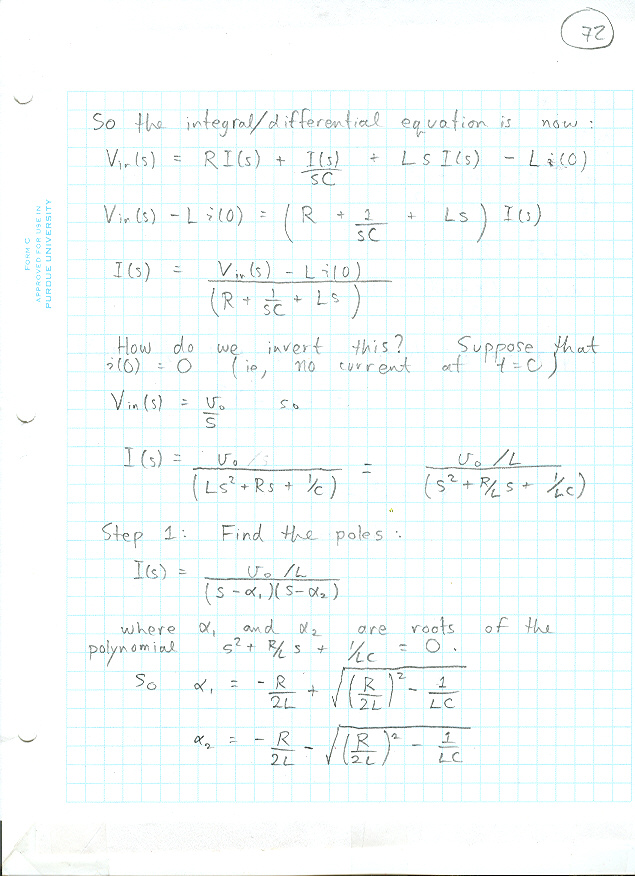 72
FORM C
APPROVED FOR USE IN
PURDUE UNIVERSITY
So the integral/differential equation is now :
Vin(s) = R I(s) + I(s)/sC + L s I(s) - L i(0)
Vin(s) - L i(0) = ( R + 1/sC + Ls ) I(s)
I(s) = Vin(s) - L i(0) / (R + 1/sC + Ls)
How do we invert this? Suppose that
i(0) = 0 (ie, no current at t=0)
Vin(s) = v₀/s so
I(s) = v₀ / (Ls² + Rs + 1/C) = v₀/L / (s² + R/L s + 1/LC)
Step 1: Find the poles :
I(s) = v₀/L / (s - α₁)(s - α₂)
where α₁ and α₂ are roots of the
polynomial s² + R/L s + 1/LC = 0.
So α₁ = - R/2L + √((R/2L)² - 1/LC)
α₂ = - R/2L - √((R/2L)² - 1/LC)